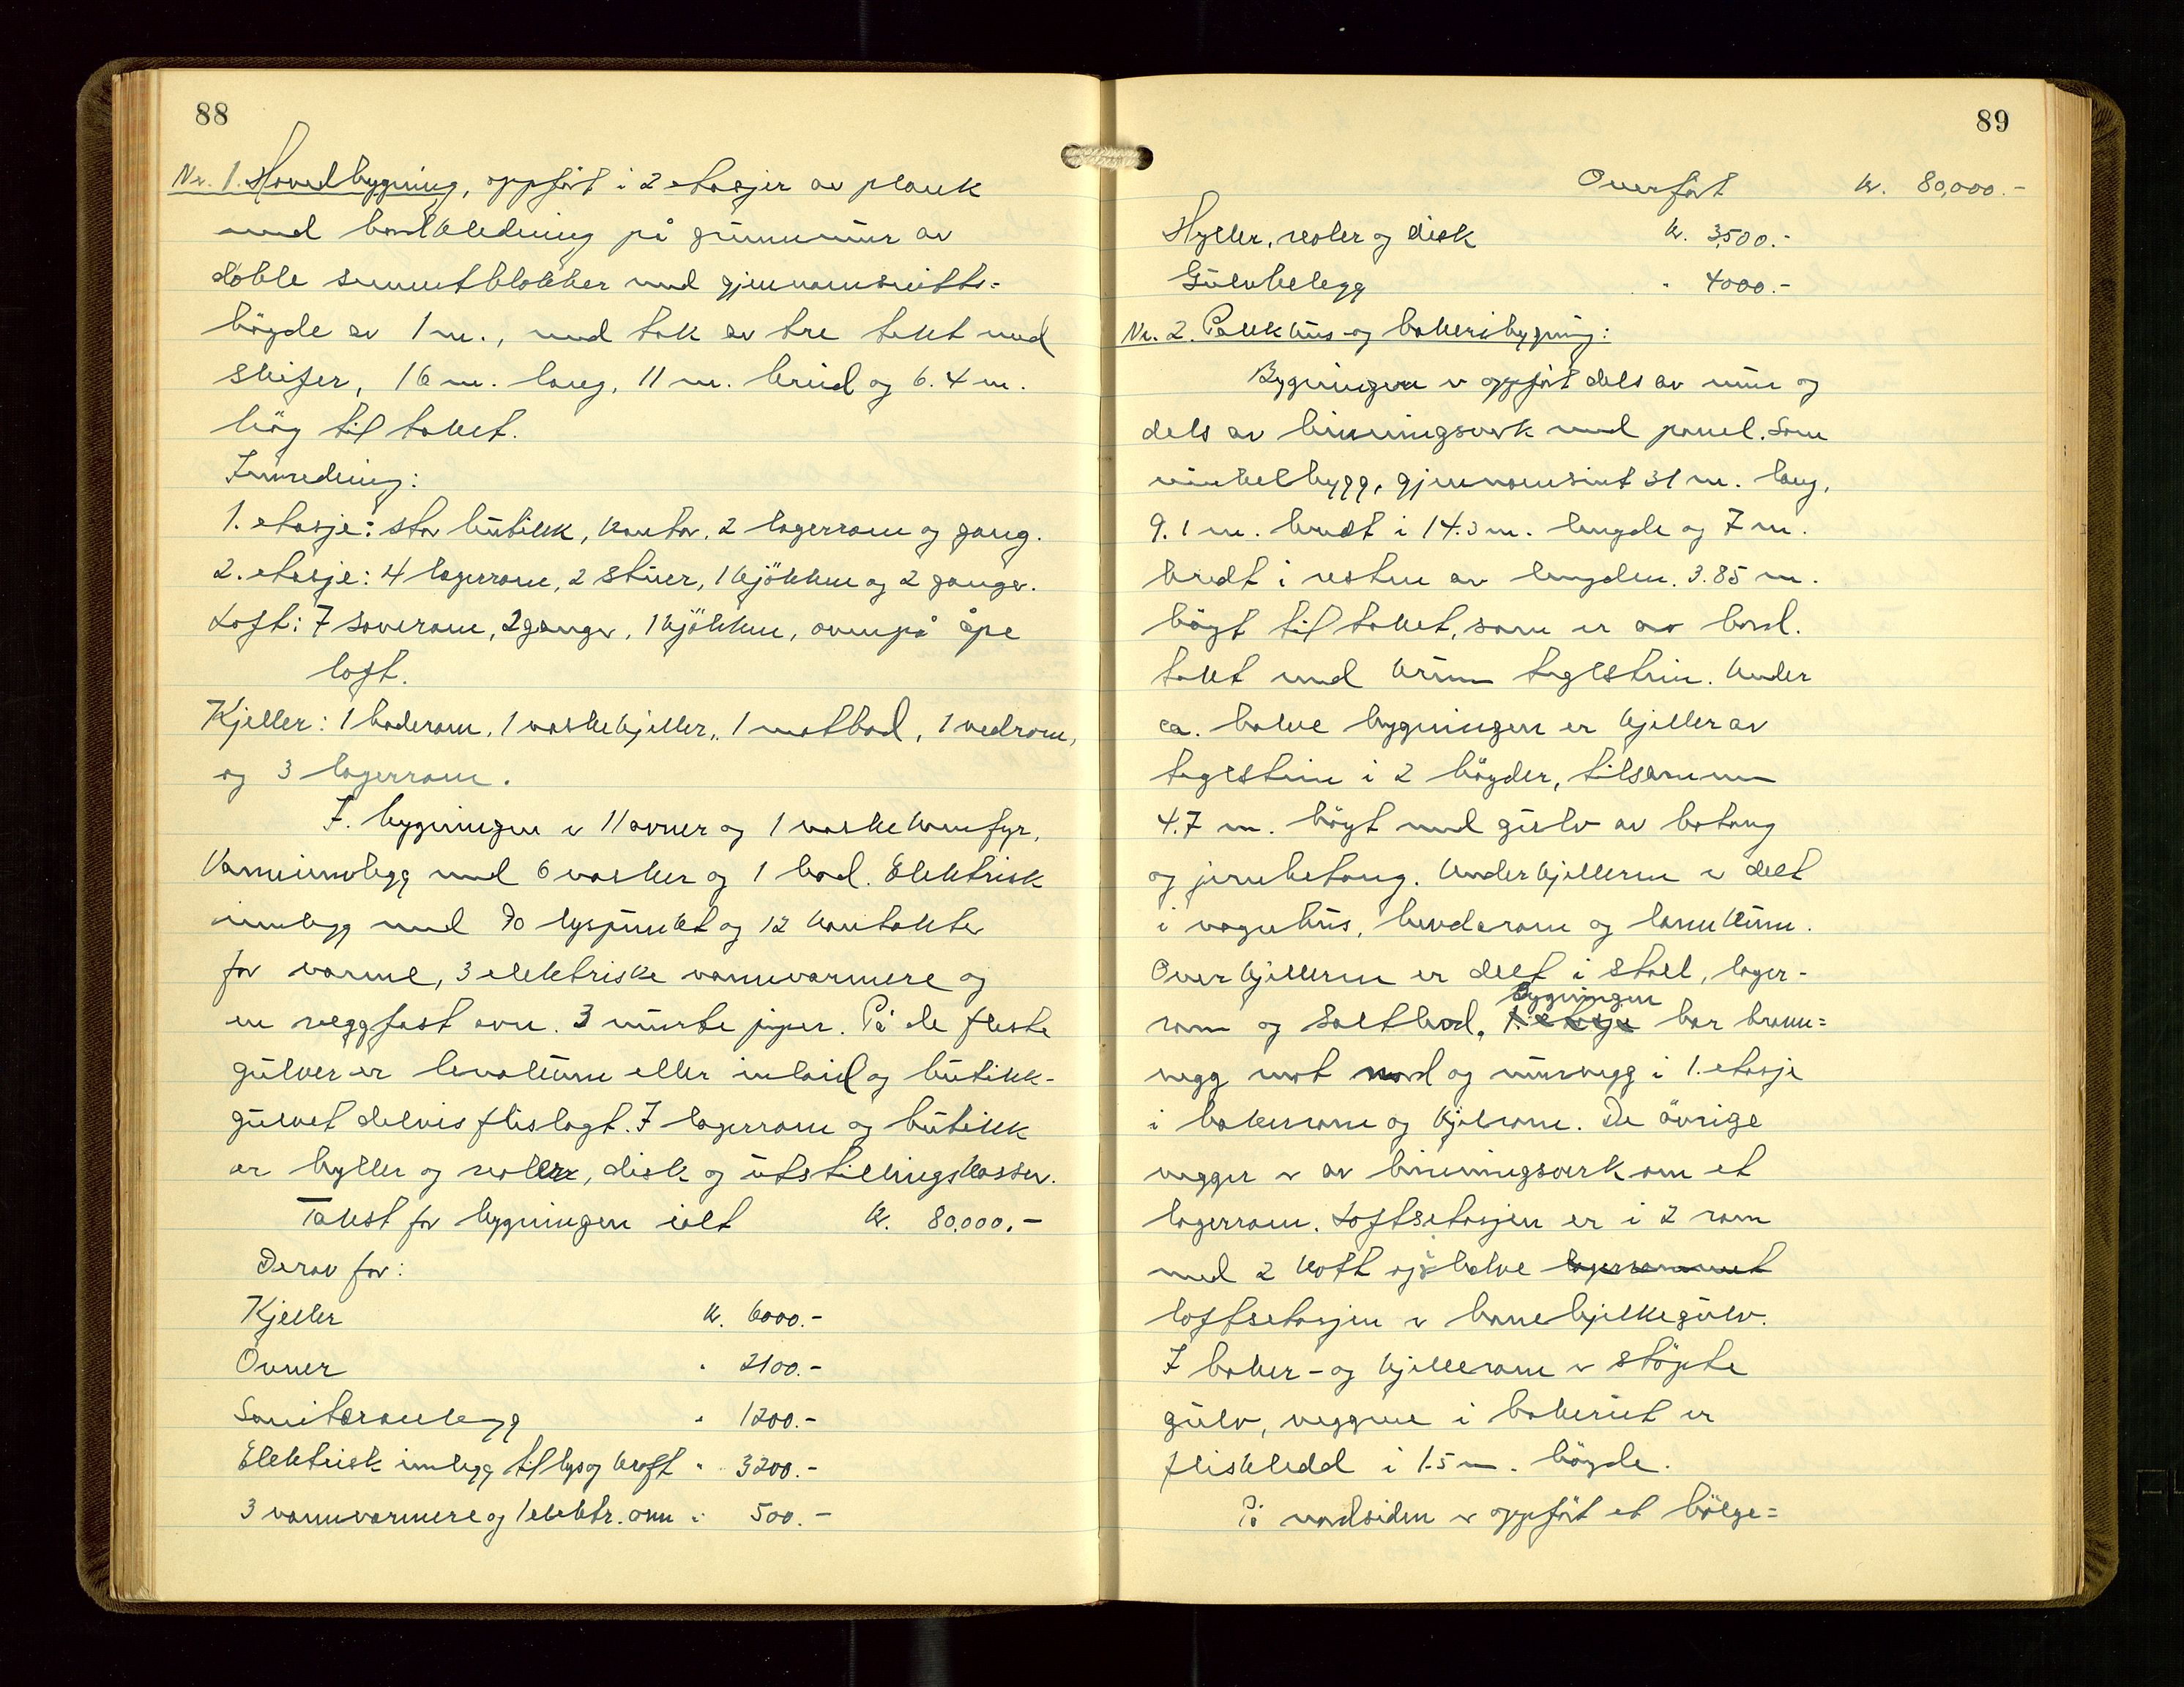 88
Nr. 1. Hovedbygning, oppført i 2 etasjer av plank
med bordkledning på grunnmur av
doble sementblokker med gjennomsnitts=
høgde av 1 m., med tak av tre tekt med
skifer, 16 m. lang, 11 m. breid og 6.4 m.
høg til taket.
Innredning:
1. etasje: stor butikk, kontor, 2 lagerrom og gang.
2. etasje: 4 lagerrom, 2 stuer, 1 kjøkken og 2 ganger.
Loft: 7 soverom, 2 ganger, 1 kjøkken, ovenpå åpe
loft.
Kjeller: 1 baderom, 1 vaskekjeller, 1 matbod, 1 vedrom,
og 3 lagerrom.
I. bygningen er 11 ovner og 1 vaskekomfyr,
Vanninnlegg med 6 vasker og 1 bad. Elektrisk
innlegg med 70 lyspunkt og 12 kontakter
for varme, 3 elektriske vannvarmere og
en veggfast ovn. 3 murte piper. På de fleste
gulver er linoleum eller inlaid og butikk-
gulvet delvis flislagt. I lagerrom og butikk
er hyller og reoler, disk og utstillingskasser.
Takst for bygningen ialt kr. 80,000.-
Derav for:
Kjeller kr. 6000.-
Ovner " 2100.-
Sanitæranlegg " 1200.-
Elektrisk innlegg til lys og kraft " 3200.-
3 vannvarmere og 1 elektr. ovn " 500.-
89
Overført kr. 80,000.-
Hyller, reoler og disk kr. 3,500.-
Gulvbelegg " 4000.-
Nr. 2. Pakkhus- og bakeribygning:
Bygningen er oppført dels av mur og
dels av binningsverk med panel. Som
vinkelbygg, gjennomsnt 31 m. lang,
9.1 m. bredt i 14.3 m. lengde og 7 m.
bredt i resten av lengden. 3.85 m.
høgt til taket, som er av bord.
tekt med krum teglstein. Under
ca. halve bygningen er kjeller av
teglstein i 2 høgder, tilsammen
4.7 m. høgt med gulv av betong
og jernbetong. Underkjelleren er delt
i vognhus, hvderom og lannkum.
Overkjelleren er delt i stall, lager-
Bygningen
rom og saltbod. 1. etasje har brann=
vegg mot nord og murvegg i 1. etasje
i bakerrom og kjølrom. De øvrige
vegger er av binningsverk om et
lagerrom. Loftsetasjen er i 2 rom
med 2 kott og i halve lagerrommet
loftsetasjen er bare bjelkegulv.
I baker- og kjellerom er støpte
gulv, veggene i bakeriet er
fliskledd i 1.5 m. høgde.
På nordsiden er oppført et bølge=